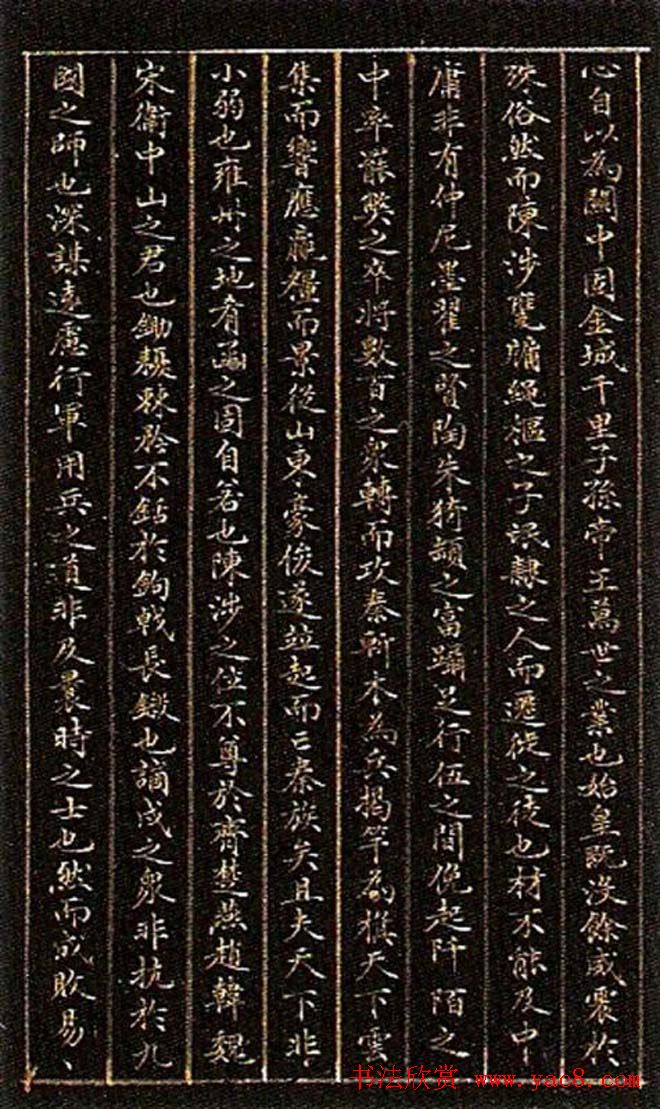 心自以為關中固金城千里子孫帝王萬世之業也始皇既沒餘威震於
殊俗然而陳涉甕牖繩樞之子氓隸之人而遷徙之徒也材不能及中
庸非有仲尼墨翟之賢陶朱猗頓之富躡足行伍之間俛起阡陌之
中率罷弊之卒將數百之眾轉而攻秦斬木為兵揭竿為旗天下雲
集而響應贏糧而景從山東豪俊遂並起而亡秦族矣且夫天下非
小弱也雍州之地肴函之固自若也陳涉之位不尊於齊楚燕趙韓魏
宋衛中山之君也鋤櫌棘矜不銛於鉤戟長鎩也謫戍之眾非抗於九
國之師也深謀遠慮行軍用兵之道非及曩時之士也然而成敗易丶
书法欣赏 www.yac8.com